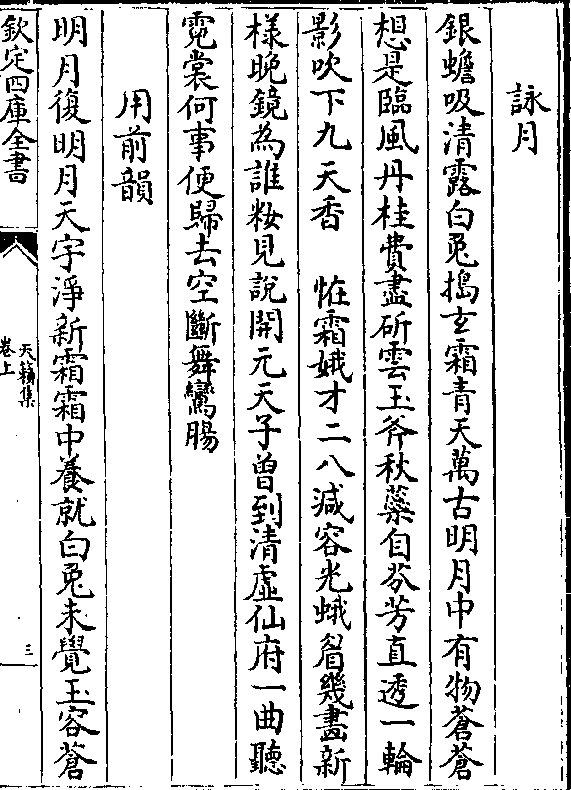 詠月
銀蟾吸清露白兎搗玄霜青天萬古明月中有物蒼蒼
想是臨風丹桂費盡斫雲玉斧秋蘂自芬芳直透一輪
影吹下九天香　恠霜娥才二八減容光蛾眉幾畫新
樣晚鏡為誰粧見說開元天子曾到清虛仙府一曲聽
霓裳何事便歸去空斷舞鸞腸
用前韻
明月復明月天宇淨新霜霜中養就白兎未覺玉容蒼
欽定四庫全書
天籟集
卷上
三